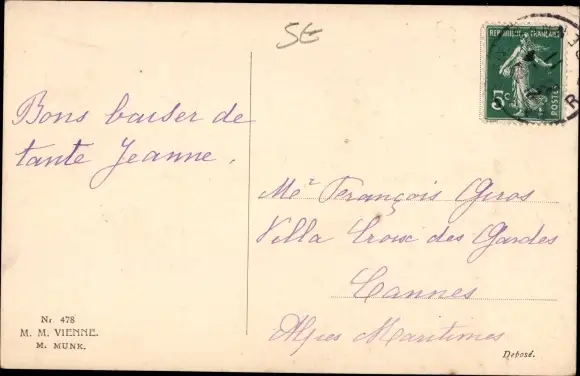 SE
REPUBLIQUE FRANÇAISE
5c
POSTES
Bons baiser de
tante Jeanne.
Mr François Giros
Villa Croix des Gardes
Cannes
Alpes Maritimes
Nr 478
M. M. VIENNE.
M. MUNK.
Deposé.